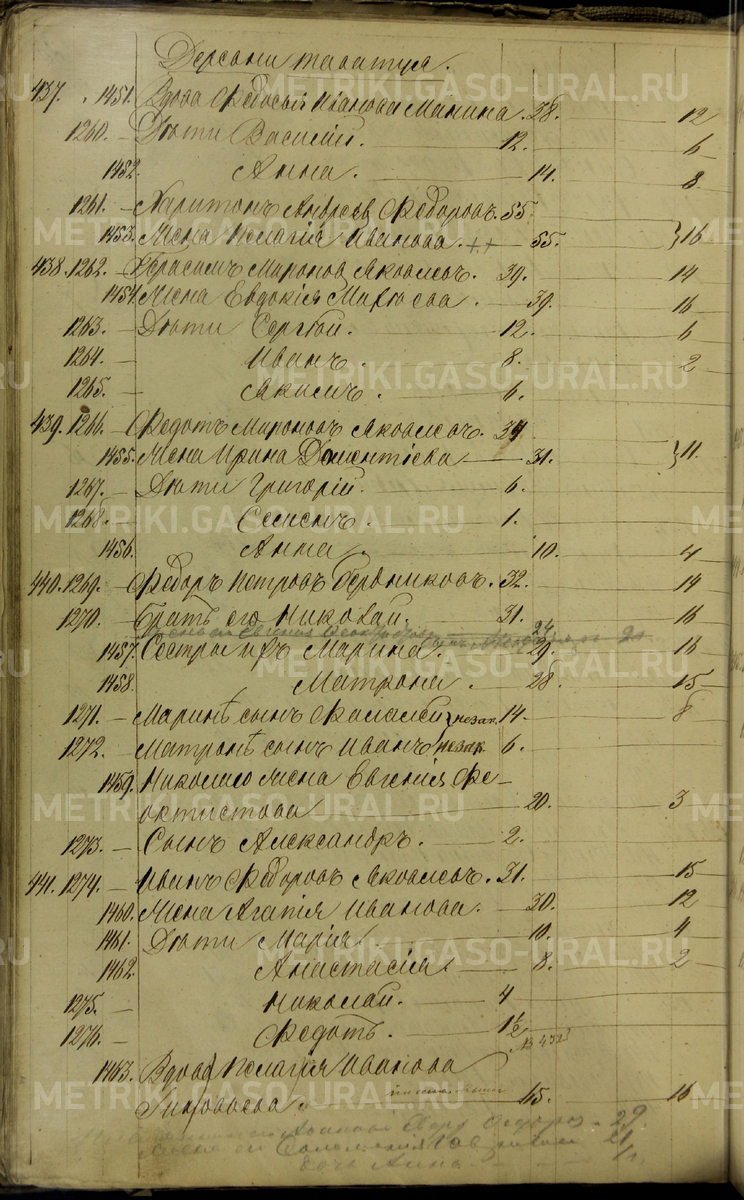 437. 1451. Вдова Федосья Иванова Манина. 38. 12
1260. — Дѣти Василій. 12. 6
1452. Анна. 14. 8
1261. — Харитонъ Андреевъ Федоровъ. 55.
1453. Жена Пелагія Иванова. ++ 55. } 16
438. 1262. — Герасимъ Мироновъ Яковлевъ. 39. 14
1454. Жена Евдокія 39. 16
1263. — Дѣти Сергѣй. 12. 6
1264. — Иванъ. 8. 2
1265. — Акимъ. 6.
439. 1266. — Федотъ Мироновъ Яковлевъ. 34
1455. Жена Ирина 31. } 11.
1267. — Дѣти Григорій. 6.
1268. — Семенъ. 1.
1456. Анна. 10. 4
440. 1269. — Федоръ Петровъ Бердниковъ. 32. 14
1270. — Братъ его Николай. 31. 16
24
1457. Сестры ихъ Марина. 29. 16
1458. Матрона. 28. 15
1271. — Маринѣ сынъ незак. 14. 8
1272. — Матронѣ сынъ Иванъ незак. 6.
1459. Николаю жена Евгенія Фе-
октистова 20. 3
1273. — Сынъ Александръ. 2.
441. 1274. — Иванъ Федоровъ Яковлевъ. 31. 15
1460. Жена Агапія Иванова. 30. 12
1461. Дѣти Марія. 10. 4
1462. Анастасія. 8. 2
1275. — Николай. 4
1276. — Федотъ. 1½
1463. Вдова Пелагія Иванова
45. 16
Федоръ - 29.
21
дочь Анна
METRIKI.GASO-URAL.RU